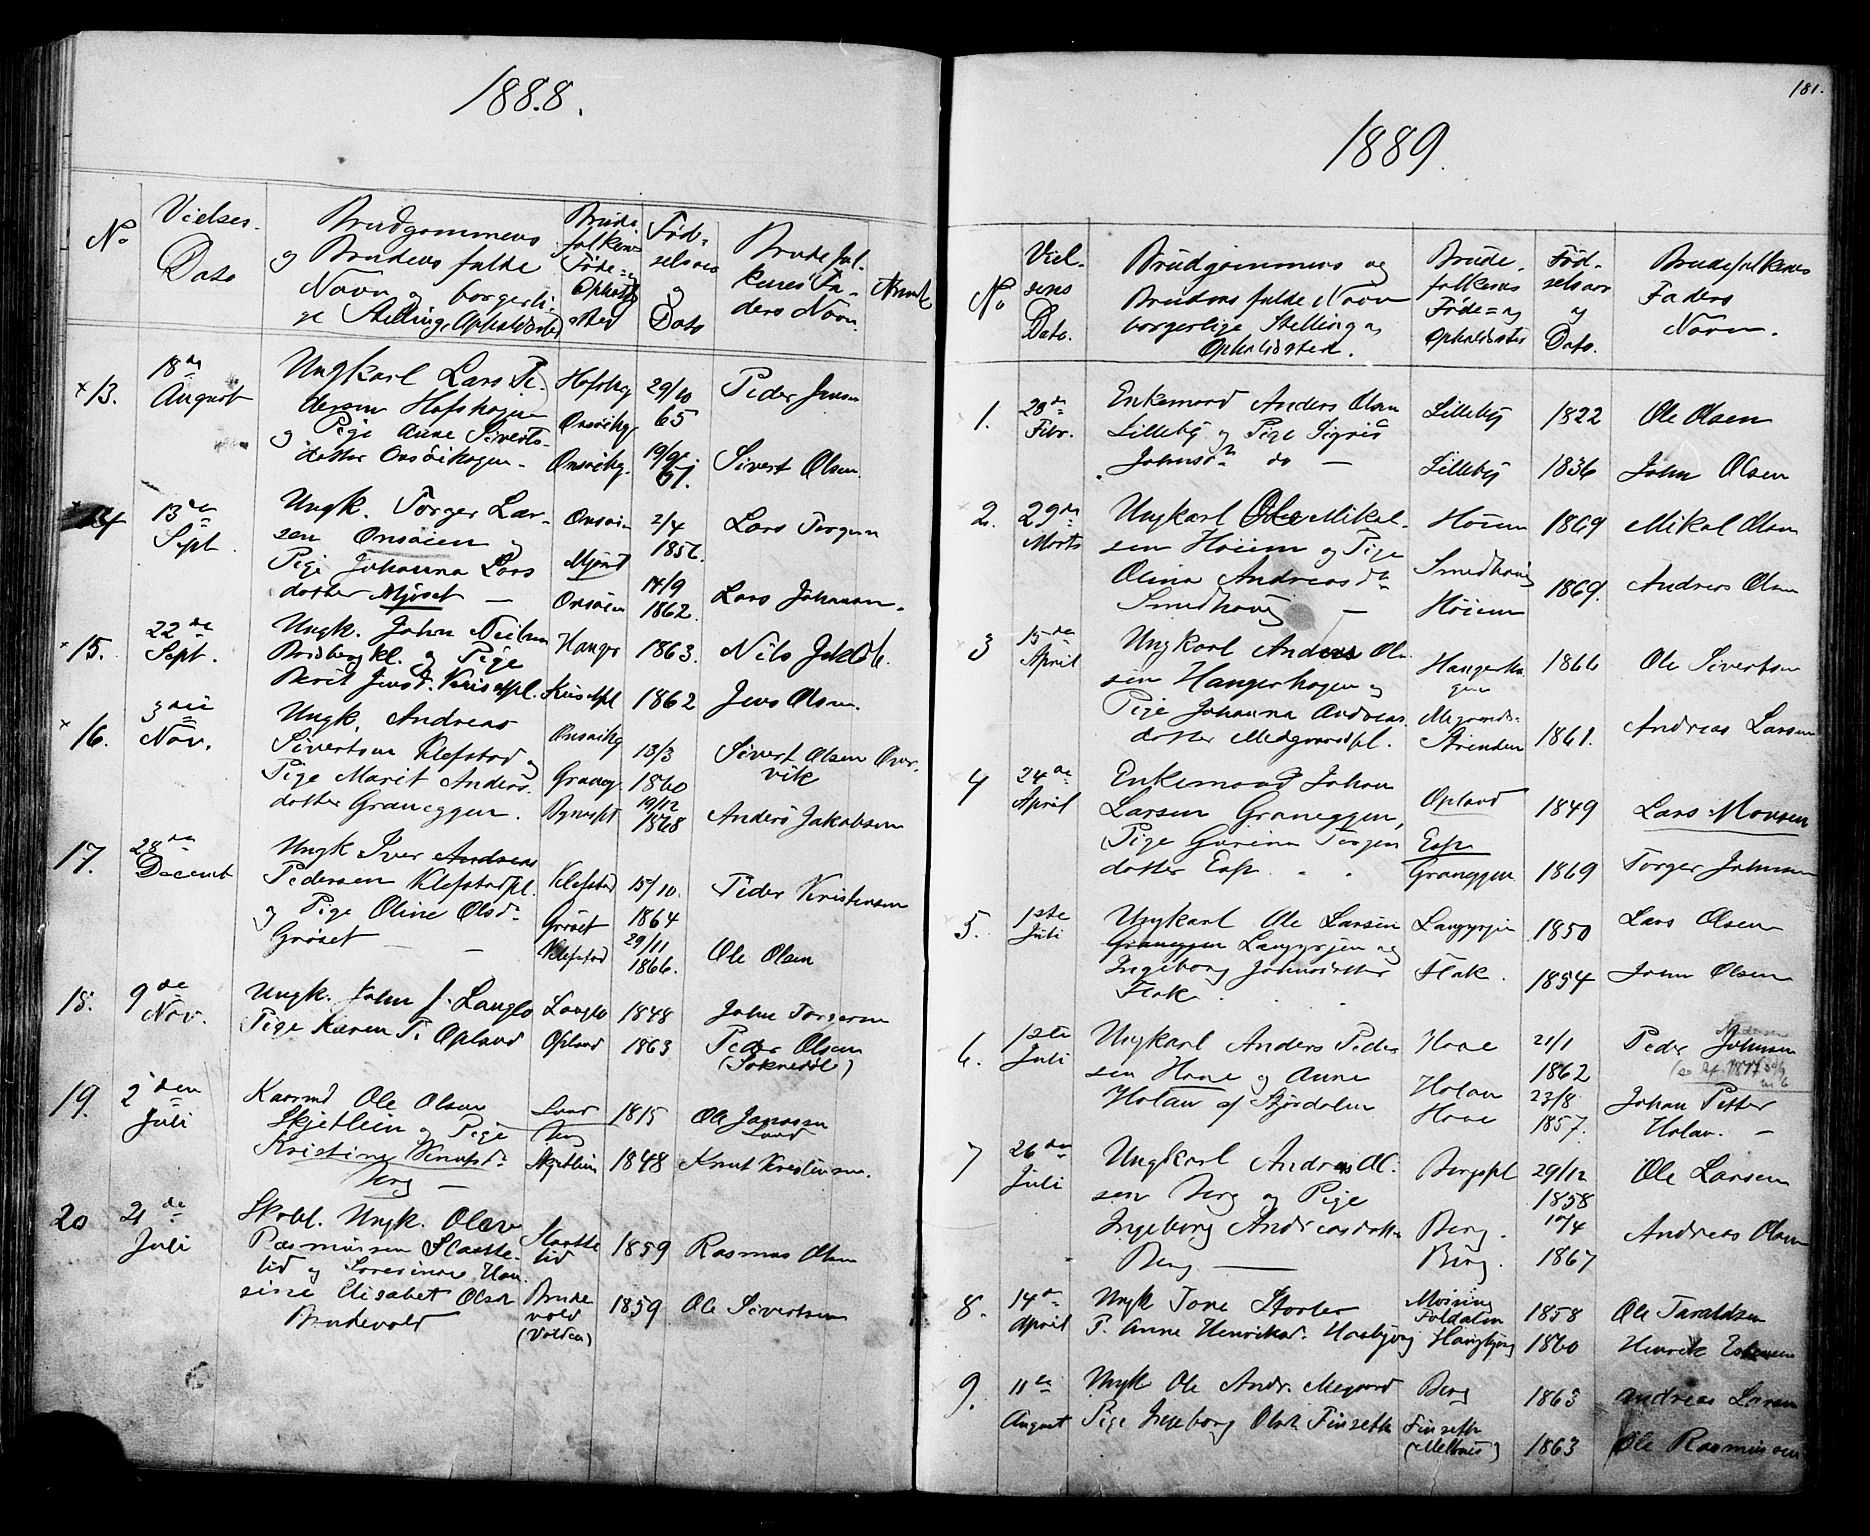 1888.
No
Vielses-
Dato
Brudgommens
og Brudens fulde
Navn og borgerli-
ge Stilling, Opholdssted
Brude-
folkenes
Føde= og
Opholds
sted
Fød-
selsaar
og
Dato
Brudefol-
kenes Fa-
ders Navn.
13.
18de
August
Ungkarl Lars Pe-
dersen Hofshagen
og Pige Anne Siverts-
datter Onsøihagen.
Hofshg
Onsøihg
Onsøihg.
29/10
65
Peder Jensen
Sivert Olsen.
14
13de
Sept.
Ungk. Torger Lar-
sen Onsøien og
Pige Johanna Lars
datter Mjøset —
Onsøien
Mjøset
Onsøien
2/4
1856.
14/9
1862.
Lars Torgersen
Lars Johansen.
15.
22de
Sept.
Ungk. John Neilsen
og Pige
Berit Jensd.
Hanger
1863.
1862
Nils Jakob.
Jens Olsen.
16.
3die
Nov.
Ungk. Andreas
Sivertsen Klefstad og
Pige Marit Anders-
datter Graneggen.
Onsøihg
Graneg.
13/3
1860
19/12
1868
Sivert Olsen Over-
vik
Anders Jakobsen
17.
28de
Decemb
Ungk Iver Andreas
Pedersen Klefstadpl.
og Pige Oline Olsdr
Grøset — —
Klefstad
Grøset
Klefstad
15/10.
1864
29/11
1866.
Peder Kristensen
Ole Olsen
18.
9de
Nov.
Ungk. John J. Langlo
Pige Karen P. Opland
Langlo
Opland
1848
1863
John Torgersen
Peder Olsen
(Soknedal)
19.
2den
Juli
Ole Olsen
Skjetlein og Pige
Kristine Knutsdr
Berg —
Berg
Skjetlein
1815
1848
Ole Jonassen
Knut Kristensen.
20
21de
Juli
Ungk. Olav
Rasmussen Slaatte-
lid og Severine Han-
sine Elisabet Olsdr
Brudevold
Slaatte
lid
Brude
vold
(Volden)
1859
1859
Rasmus Olsen
Ole Sivertsen
181.
1889.
No
Viel-
sens
Dato.
Brudgommens og
Brudens fulde Navn
borgerlige Stilling og
Opholdssted.
Brude-
folkenes
Føde= og
Opholdssted
Fød-
selsaar
og
Dato.
Brudefolkenes
Faders
Navn.
1.
28de
Febr.
Enkemand Anders Olsen
Lilleby og Pige Sigrid
Johnsdr do —
Lilleby
Lilleby
1822
1836
Ole Olsen
John Olsen
2.
29de
Marts
Ungkarl Ole Mikal-
sen Høiem og Pige
Olina Andreasdr
Smedhaug —
Høiem
Smedhaug
Høiem
1869
1869.
Mikal Olsen
Andreas Olsen
3
15de
April
Ungkarl Anders Ol-
sen Hangerhagen og
Pige Johanna Andreas-
datter Medgaardspl.
Hangerha
gen
Strinden
1866
1861.
Ole Sivertsen
Andreas Larsen
4
24de
April
Enkemand Johan
Larsen Graneggen,
Pige Gurina Torger
datter Esp. . .
Opland
Esp
Graneggen
1849
1869
Lars Monsen
Torger Johnsen
5.
1ste
Juli
Ungkarl Ole Larsen
Graneggen Langørjen og
Ingeborg Johnsdatter
Flak . . .
Langørjen
Flak.
1850
1854
Lars Olsen
John Olsen
6.
1ste
Juli
Ungkarl Anders Peder
sen Hove og Anne
Holan af Stjørdalen
Hove
Holan
Hove
21/1
1862
23/8
1857.
Peder Johnsen
Johan Petter
Holan. —
7
26de
Juli
Ungkarl Andreas Ol-
sen Berg og Pige
Ingeborg Andreasdatter
Berg —
Bergspl
Berg.
Berg.
29/12
1858
10/4
1867
Ole Larsen
Andreas Olsen
8.
14de
April
Ungk Tore Storler
P. Anne Henriksd. Haugbjørg
Foldalen
Haugbjørg
1858
1860
Ole Taraldsen
Henrik
9.
11te
August
Ungk Ole Andr. Megaard
Pige Ingeborg Olsdr Finseth
Berg
Finseth
(Meldal)
1863
1863
Andreas Larsen
Ole Rasmussen